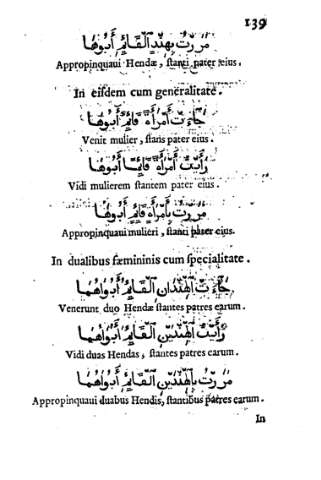 139
مَرَرْتُ بِهِنْدٍ الْقَائِمِ أَبُوهَا
Appropinquaui Hendæ, stanti pater eius.
In eisdem cum generalitate.
جَاءَتْ امْرَأَةٌ قَائِمٌ أَبُوهَا
Venit mulier, stans pater eius.
رَأَيْتُ امْرَأَةً قَائِمًا أَبُوهَا
Vidi mulierem stantem pater eius.
مَرَرْتُ بِامْرَأَةٍ قَائِمٍ أَبُوهَا
Appropinquaui mulieri, stanti pater eius.
In dualibus fœmininis cum specialitate.
جَاءَتْ الْهِنْدَانِ الْقَائِمُ أَبُوَاهُمَا
Venerunt duo Hendæ stantes patres earum.
رَأَيْتُ الْهِنْدَيْنِ الْقَائِمَ أَبُوَاهُمَا
Vidi duas Hendas, stantes patres earum.
مَرَرْتُ بِالْهِنْدَيْنِ الْقَائِمِ أَبُوَاهُمَا
Appropinquaui duabus Hendis, stantibus patres earum.
In